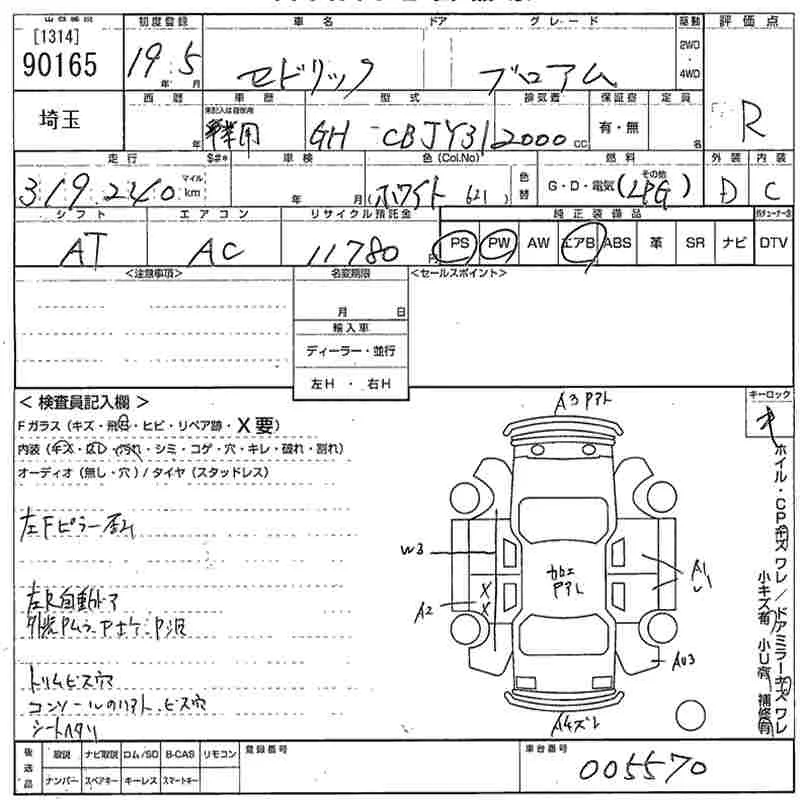 [1314]
90165
初度登録 車名 ドア グレード 駆動 評価点
19年 5月 セドリック ブロアム 2WD・4WD R
埼玉
西暦 車歴 型式 排気量 保証書 定員
年 事業用 GH-CBJY31 2000cc 有・無 名
走行 車検 色(Col.No) 色替 燃料 外装 内装
319,240 マイル km 年 月 ホワイト 621 G・D・電気 その他 (LPG) D C
シフト エアコン リサイクル預託金 純正装備品
AT AC 11780円 PS PW AW エアB ABS 革 SR ナビ DTV
<注意事項> 名変期限 <セールスポイント>
月 日
輸入車
ディーラー・並行
左H ・ 右H
< 検査員記入欄 > キーロック
Fガラス (キズ・飛石・ヒビ・リペア跡・X要)
内装 (キズ・凹・汚れ・シミ・コゲ・穴・キレ・破れ・割れ)
オーディオ (無し・穴) / タイヤ (スタッドレス)
左Fピラー歪ミ
左R自動ドア
トリムビス穴
コンソールのリアト、ビス穴
シートヘタリ
A3
W3
A2
X
X
A1
AU3
ホイル・CPキズ ワレ / ドアミラーキズ ワレ
小キズ有 小U有 補修有
後送品 取説 ナビ取説 ロム/SD B-CAS リモコン 登録番号 車台番号
ナンバー スペアキー キーレス スマートキー 005570